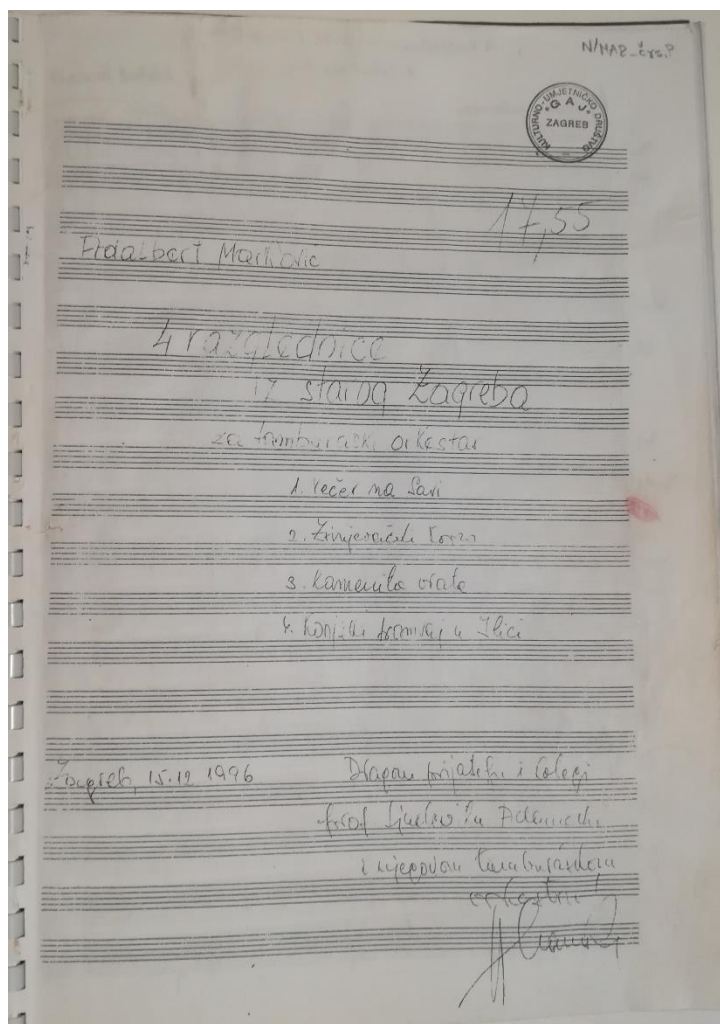 N/MAR_črs.?
KULTURNO-UMJETNIČKO DRUŠTVO
"GAJ"
ZAGREB
17,55
Adalbert Marković
4 razglednice
iz starog Zagreba
za tamburaški orkestar
1. večer na Savi
2. Zrinjevački korzo
3. Kamenita vrata
4. Konjski tramvaj u Ilici
Zagreb, 15.12 1996
Dragom prijatelju i kolegi
prof
i njegovom tamburaškom
orkestru